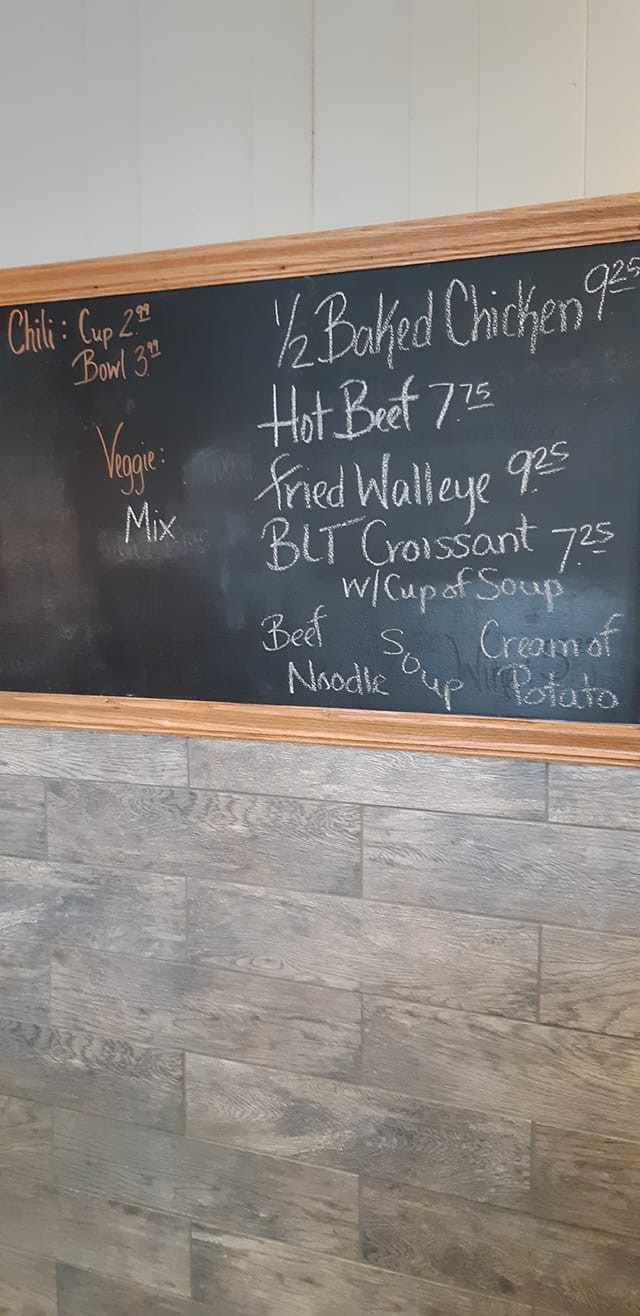 Chili: Cup 2.99
Bowl 3.99
Veggie:
Mix
1/2 Baked Chicken 9.25
Hot Beef 7.75
Fried Walleye 9.25
BLT Croissant 7.25
W/Cup of Soup
Beef Noodle
Soup
Cream of Potato